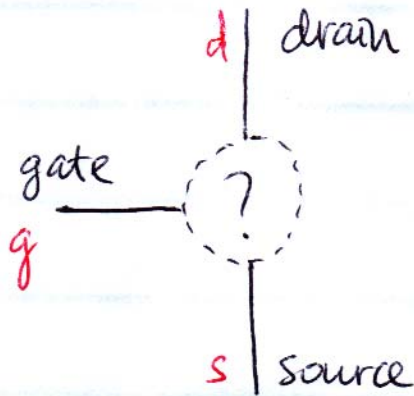 d drain
gate
?
g
s source